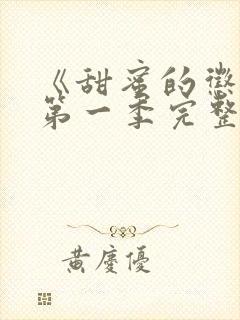 《甜蜜的懲
第一季完整
黃慶優